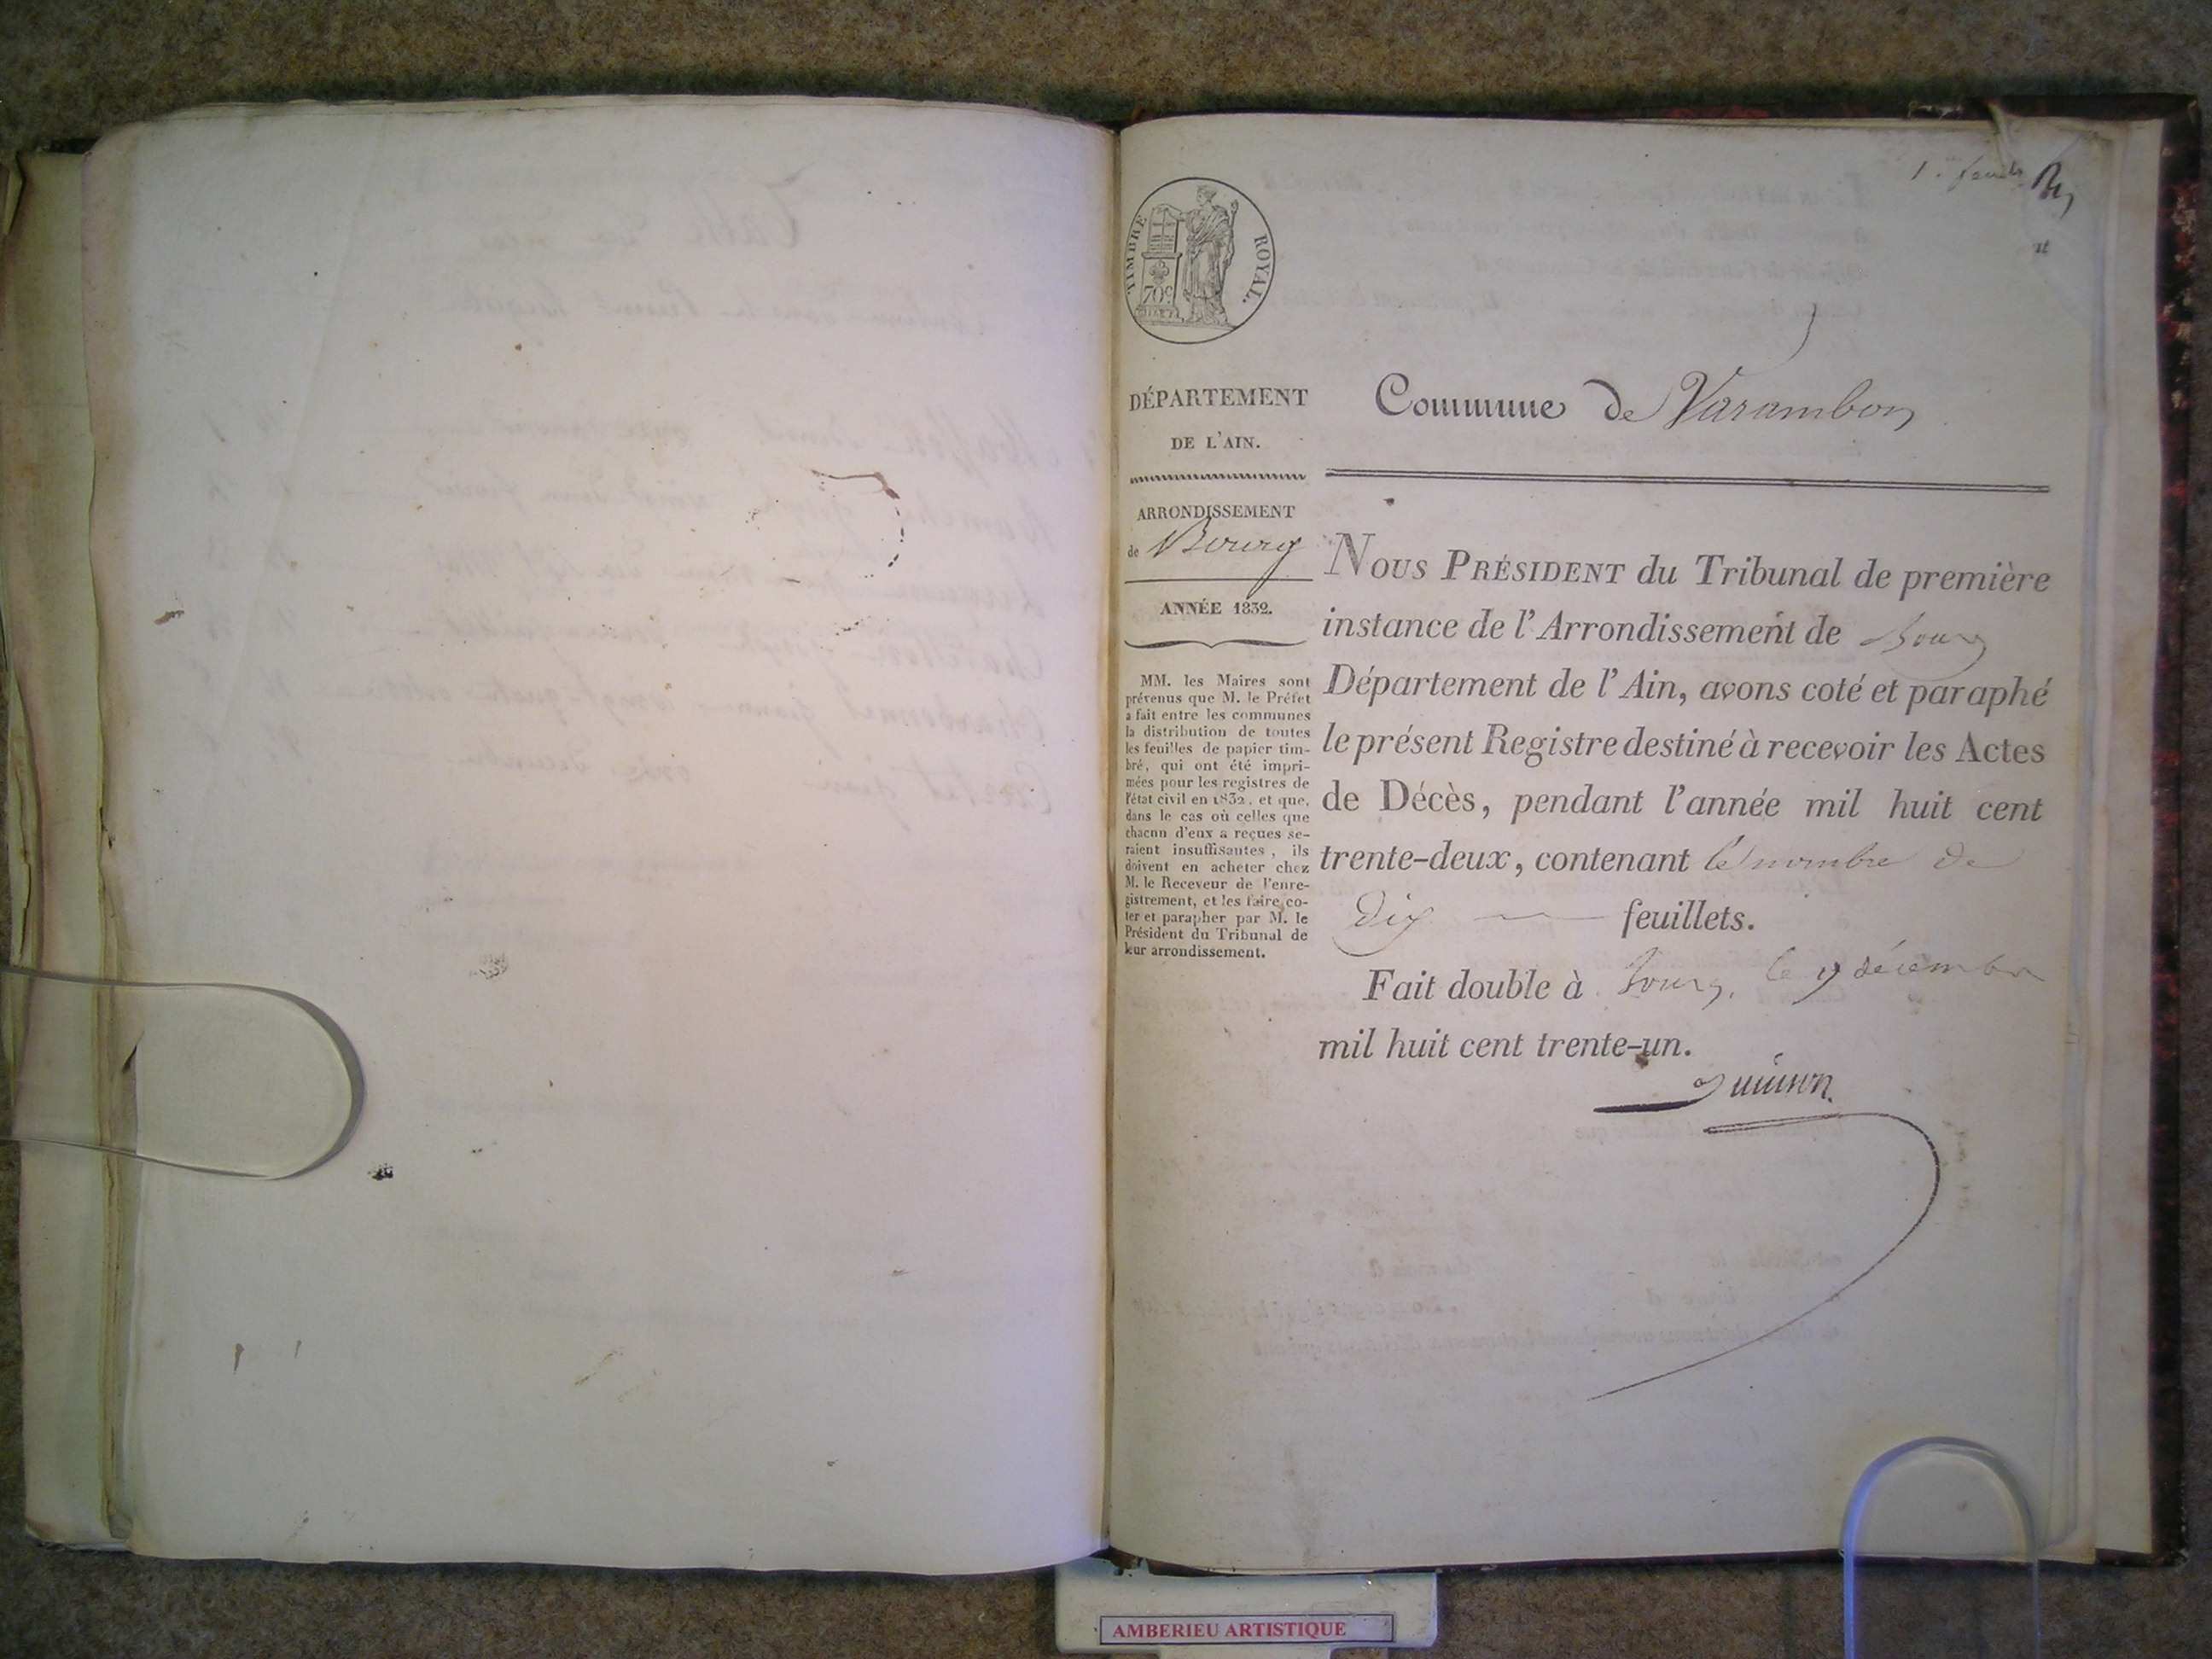 TIMBRE ROYAL.
70c
DÉPARTEMENT
DE L'AIN.
ARRONDISSEMENT
de Bourg
ANNÉE 1832.
MM. les Maires sont
prévenus que M. le Préfet
a fait entre les communes
la distribution de toutes
les feuilles de papier tim-
bré, qui ont été impri-
mées pour les registres de
l'état civil en 1832, et que,
dans le cas où celles que
chacun d'eux a reçues se-
raient insuffisantes, ils
doivent en acheter chez
M. le Receveur de l'enre-
gistrement, et les faire co-
ter et parapher par M. le
Président du Tribunal de
leur arrondissement.
Commune de Varambon
NOUS PRÉSIDENT du Tribunal de première
instance de l'Arrondissement de Bourg
Département de l'Ain, avons coté et paraphé
le présent Registre destiné à recevoir les Actes
de Décès, pendant l'année mil huit cent
trente-deux, contenant le nombre de
dix feuillets.
Fait double à Bourg, le 9 décembre
mil huit cent trente-un.
AMBERIEU ARTISTIQUE